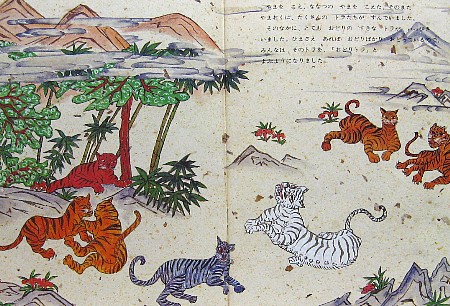 やまを こえ、ななつの やまを こえた、そのまた
やまおくに、たくさんの トラたちが すんでいました。
そのなかに、とても おどりの すきな トラが
いました。ひまさえ あれば おどりばかり
みんなは、そのトラを、「おどりトラ」と
よぶようになりました。